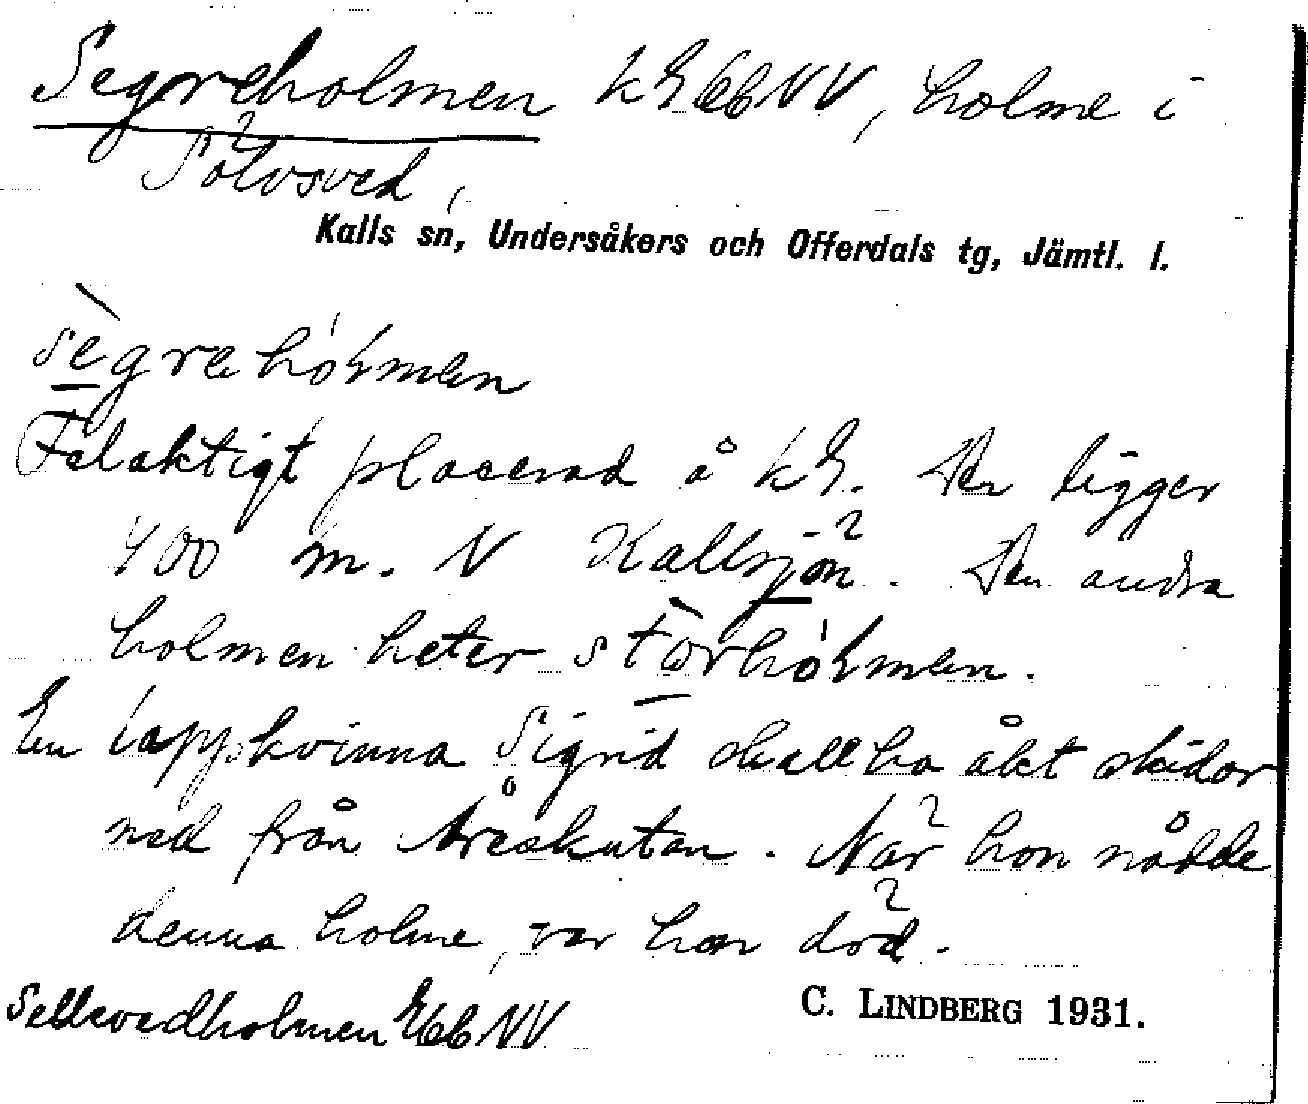 Segreholmen kE 66 NV, holme i
Sölvsved,
Kalls sn, Undersåkers och Offerdals tg, Jämtl. l.
sègrehólmen
Felaktigt placerad å kE. Den ligger
400 m. N Kallsjön. Den andra
holmen heter stòrhólmen.
En lappkvinna Sigrid skall ha åkt skidor
ned från Åreskutan. När hon nådde
denna holme, var hon död.
Sellsvedholmen E66 NV
C. LINDBERG 1931.